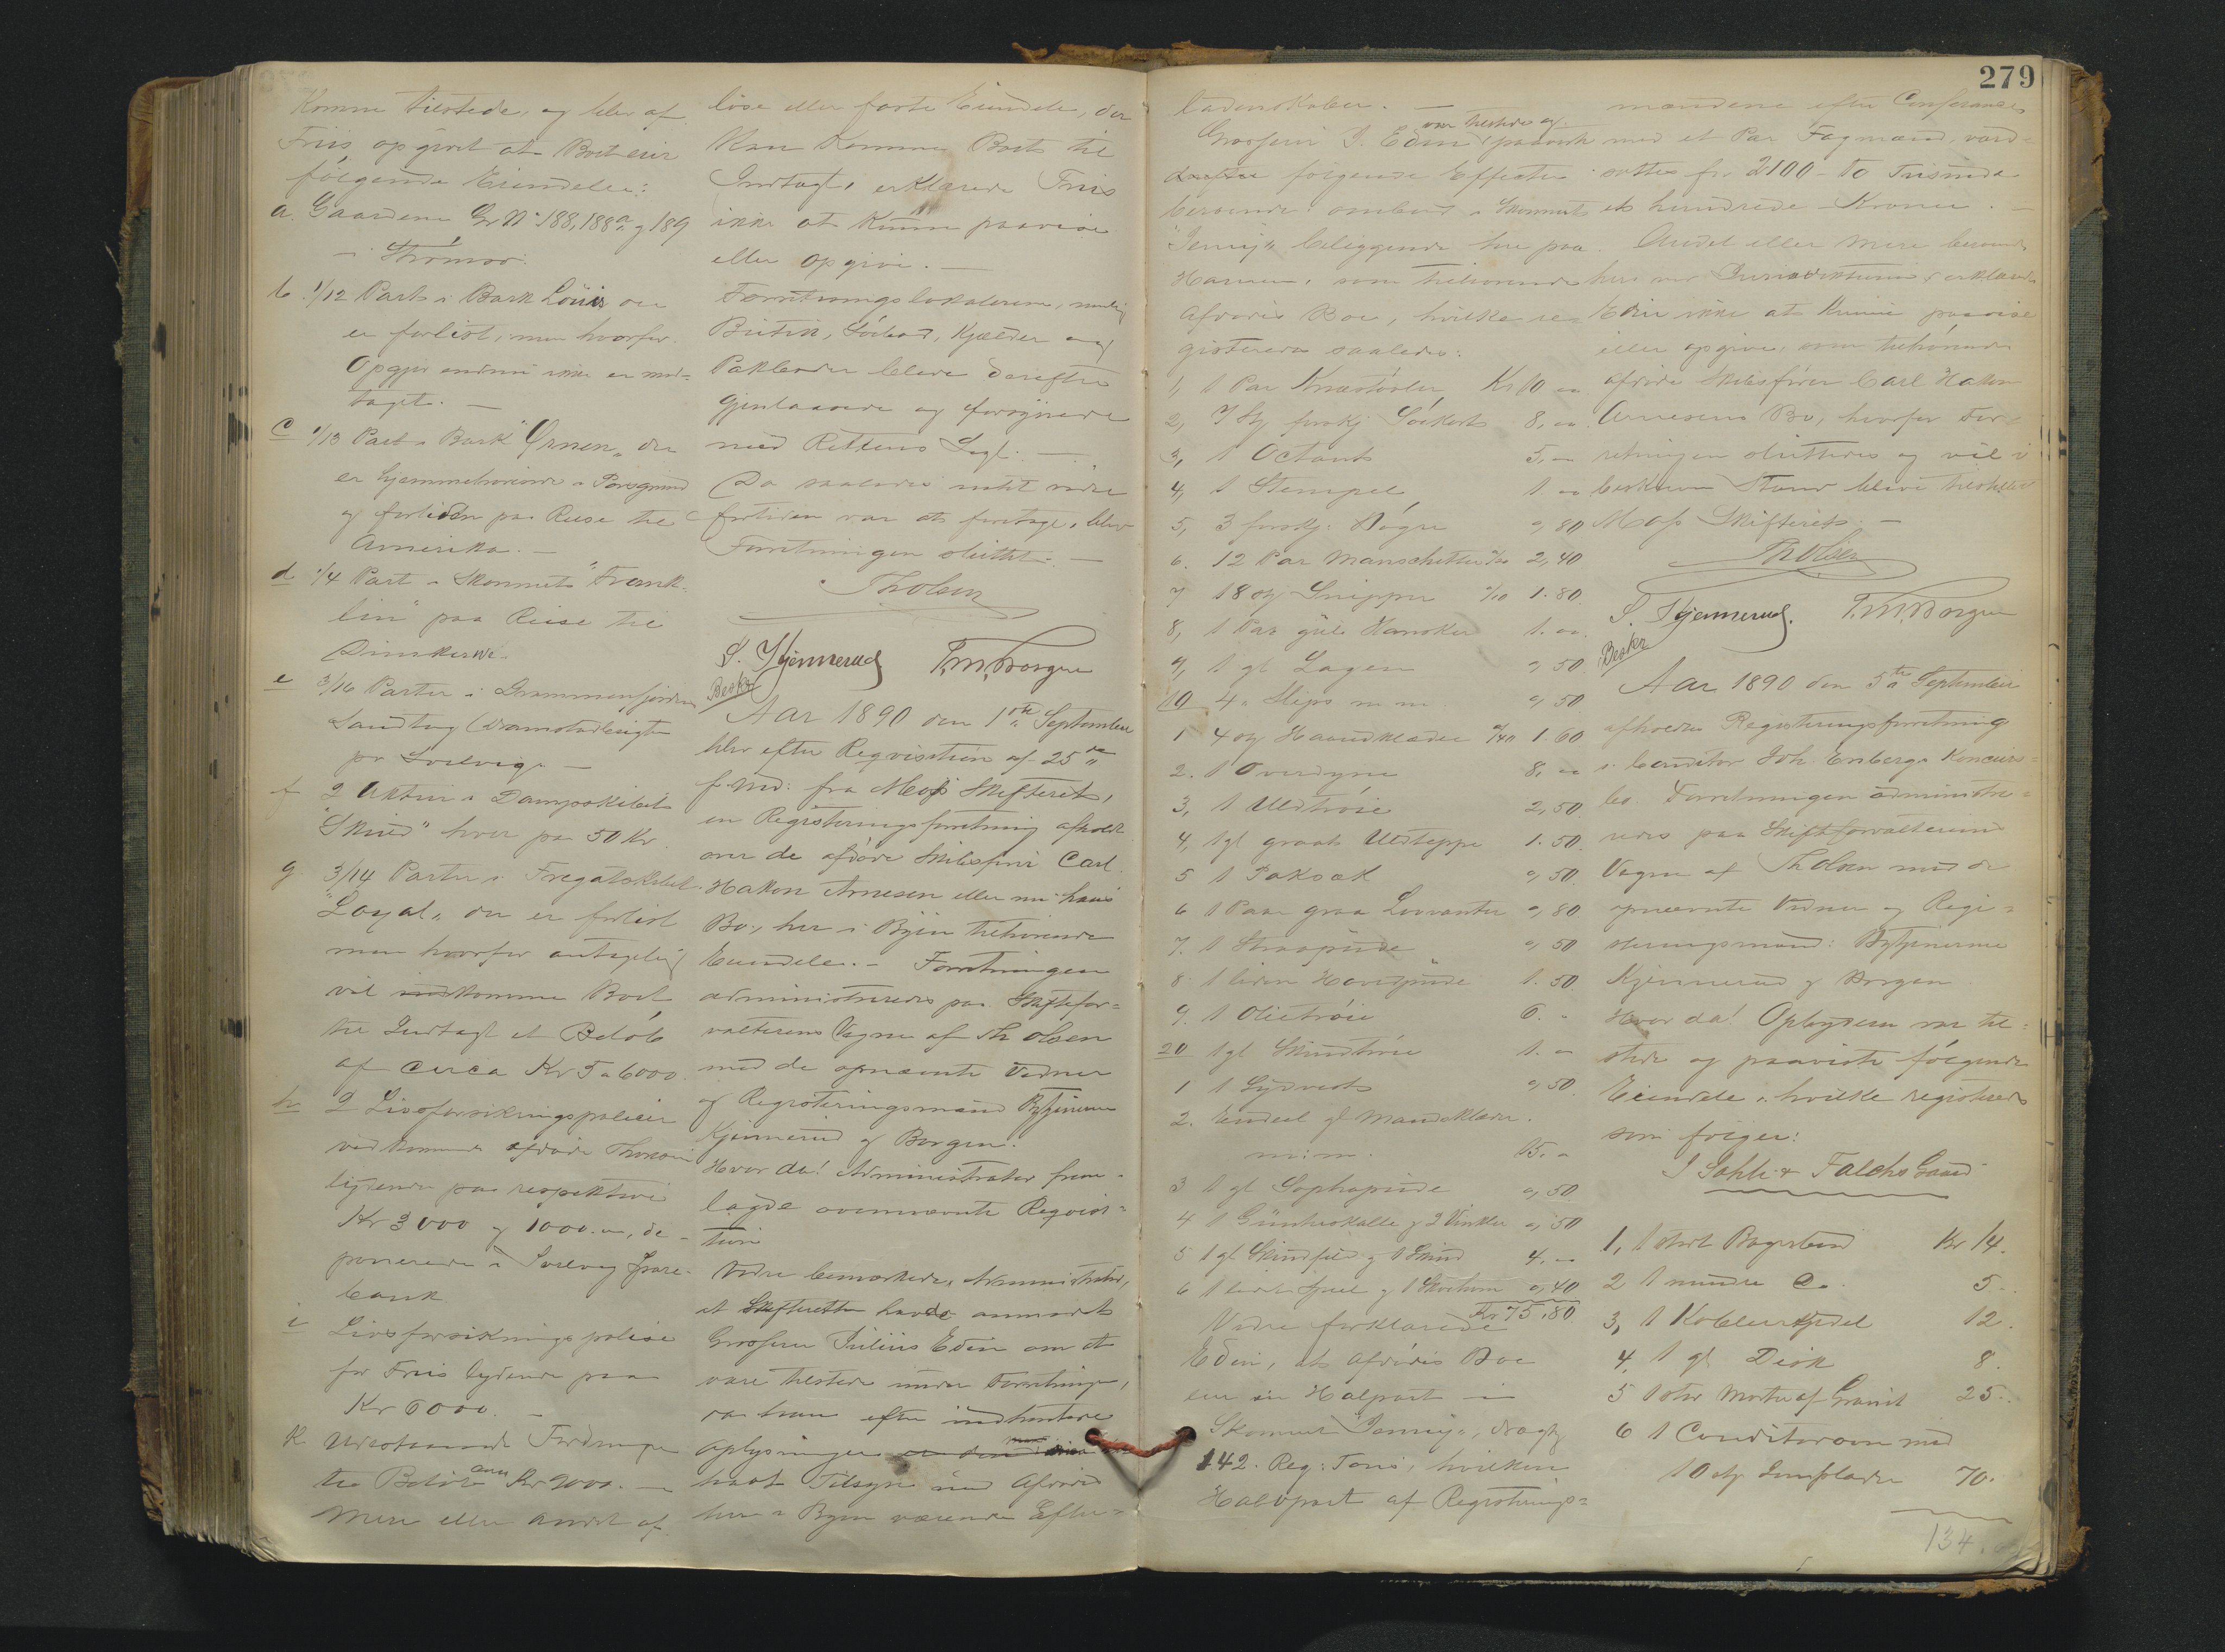 Komme tilstede, og blev af
Friis opgivet at Boet eier
følgende Eiendele:
a. Gaardene Gr No 188, 188a og 189
i Strømsø.
b. 1/12 Part i Bark Louis der
er forlist, men hvorfor
Opgjør endnu ikke er mod-
taget. —
c 1/13 Part i Bark "Ørnen" der
er hjemmehørende i Porsgrund
og fortiden paa Reise til
Amerika. —
d 1/4 Part i Skonnert "Frank-
lin" paa Reise til
e 3/16 Parter i Drammensfjordens
f 2 Aktier i Dampskibet
"Skired" hver paa 50 Kr.
g. 3/14 Parter i Fregatskibet
"Loyal" der er forlist
men hvorfor antagelig
vil indkomme Boet
til Indtægt et Beløb
af circa Kr 5 a 6000.
h 2 Livsforsikringspolicer
vedkommende afdøde
lydende paa respektive
Kr 3000 og 1000.„, de-
ponerede i Svelvig Spare-
bank
i Livsforsikringspolise
for Friis lydende paa
Kr 6000. —
k Udestaaende Fordringer
til Beløb circa Kr 9000. —
Mere eller andet af
løse eller faste Eiendele, der
kan komme Boet til
Indtægt, erklærede Friis
ikke at kunne paavise
eller opgive. —
Forretningslokalerne, nemlig
Butik, Søebod, Kjælder og
Pakboder bleve derefter
gjenlaasede og forsynede
med Rettens Segl. —
Da saaledes intet videre
fortiden var at foretage, blev
Forretningen sluttet. —
Th Olsen
S. Kjennerud T. M. Borgen
Beskr
Aar 1890 den 1ste September
blev efter Reqvisition af 25de
f. Md: fra Moss Skifteret,
en Registeringsforretning afholdt
over de afdøde Skibsfører Carl
Hakon Arnesen eller nu hans
Bo, her i Byen tilhørende
Eiendele. — Forretningen
administreredes paa Skiftefor-
valterens Vegne af Th Olsen
med de opnævnte Vidner
og Registeringsmænd Bytjenerne
Kjennerud og Borgen.
Hvor da! Administrator frem-
lagde ovennævnte Reqvisi-
tion
Videre bemærkede Administrator,
at Skifteretten havde anmodet
Grosserer Julius Edin om at
være tilstede under Forretningen,
da han efter indhentede
Oplysninger
havt Tilsyn med Afdødes
her i Byen værende Efter-
279
ladenskaber. —
Grosserer J. Edin var tilstede og paaviste
følgende Effecter
beroende ombord i Skonnert
"Jenny" beliggende her paa
Havnen, som tilhørende
Afdødes Boe, hvilke re-
gistreredes saaledes:
1, 1 Par Knæstøvler Kr 10 „
2, 7 Stk forskj Søekort 8, „
3, 1 Octant 5, „
4, 1 Stempel 1 „
5, 3 forskj: Bøger „ 80
6. 12 Par Manschetter 2,40
7 18 stk Snipper 1.80
8, 1 Par gule Hansker 1. „
9, 1 gl Lagen „ 50
10 4 „ Slips m m. „ 50
1 4 stk Haandklæder 1.60
2. 1 Overdyne 8. „
3, 1 Uldtrøie 2,50
4, 1 gl graat Uldteppe 1.50
5 1 Paksæk „ 50
6 1 Paar graa Lovvanter „ 80
7. 1 Straapude „ 50
8 1 liden Hovedpude 1.50
9. 1 Olietrøie 6. „
20 1 gl Skindtrøie 1. „
1 1 Sydvest „ 50
2. Endeel gl Mandsklæder
m:m. 15. „
3 1 gl Sophapude „ 50
4 og 2 Vinkler „ 50
5 1 gl Skindfeld og 1 Skind 4. „
6 „ 40
Kr 75,80
Videre forklarede
Edin, at Afdødes Boe
eier en Halvpart i
Skonnert "Jenny", drægtig
142. Reg: Tons, hvilken
Halvpart af Registerings-
mændene efter Conferance
med et Par Fagmænd, værd-
sattes for 2100 - To Tusinde
et hundrede - Kroner. —
Andet eller mere beroende
her under Jurisdiktionen, erklærede
Edin ikke at kunne paavise
eller opgive, som tilhørende
afdøde Skibsfører Carl Hakon
Arnesens Bo, hvorfor For-
retningen sluttedes og vil i
beskreven Stand blive tilstillet
Moss Skifteret. —
Th Olsen
S. Kjennerud. T. M. Borgen
Beskr
Aar 1890 den 5te September
afholdtes Registeringsforretning
i Conditor Joh. Enbergs Koncurs-
bo. Forretningen administre-
redes paa Skifteforvalterens
Vegne af Th Olsen med de
opnævnte Vidner og Regi-
steringsmænd: Bytjenerne
Kjennerud og Borgen.
Hvor da! Opbyderen var til-
stede og paaviste følgende
Eiendele, hvilke registreredes
som følger:
I Sahli & Falchs Gaard
1, 1 stort Bagerbord Kr 14.
2 1 mindre do 5.
3, 1 Kobberkjedel 12.
4, 1 gl Disk 8.
5 1 stor Morter af Granit 25.
6 1 Conditorovn med
10 stk Jernplader 70.
134.